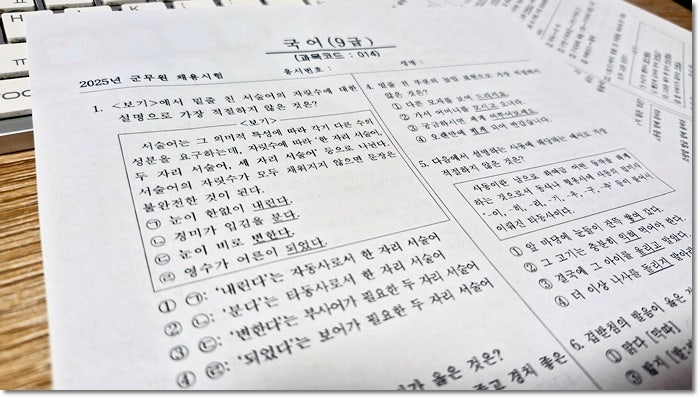 국 어 (9급)
(과목코드 : 014)
2025년 군무원 채용시험
응시번호 :
성명 :
1. <보기>에서 밑줄 친 서술어의 자릿수에 대한
설명으로 가장 적절하지 않은 것은?
<보기>
서술어는 그 의미적 특성에 따라 각기 다른 수의
성분을 요구하는데, 자릿수에 따라 '한 자리 서술어,
두 자리 서술어, 세 자리 서술어' 등으로 나뉜다.
서술어의 자릿수가 모두 채워지지 않으면 문장은
불완전한 것이 된다.
㉠ 눈이 한없이 내린다.
㉡ 경미가 입김을 분다.
㉢ 눈이 비로 변한다.
㉣ 영수가 어른이 되었다.
① ㉠: '내린다'는 자동사로서 한 자리 서술어
② ㉡: '분다'는 타동사로서 한 자리 서술어
③ ㉢: '변한다'는 부사어가 필요한 두 자리 서술어
④ ㉣: '되었다'는 보어가 필요한 두 자리 서술어
옳은 것은?
경치 좋은
4. 밑줄 친 부분의 높임 표현으로 가장 적절하지
않은 것은?
① 다른 모자를 보여 드릴까요.
② 가서 어머니를 모시고 오너라.
③ 궁금하시면 제게
④ 오랜만에 뵙게 되어 반갑습니다.
5. 다음에서 설명하는 사동에 해당하는 예로 가장
적절하지 않은 것은?
사동이란 남으로 하여금 어떤 동작을 하게
하는 것으로서 동사나 형용사에 사동의 접미사
'-이, -히, -리, -기, -우, -구, -추' 등이 붙어서
이뤄진 타동사이다.
① 앞 마당에 눈들이 잔뜩 쌓여 있다.
② 그 고기는 충분히 익혀 먹어야 한다.
③ 결국에 그 아이를 울리고 말았다.
④ 더 이상 나사를 돌리지
6. 겹받침의 발음이 옳은
① 맑다 [막따]
③ 밟지